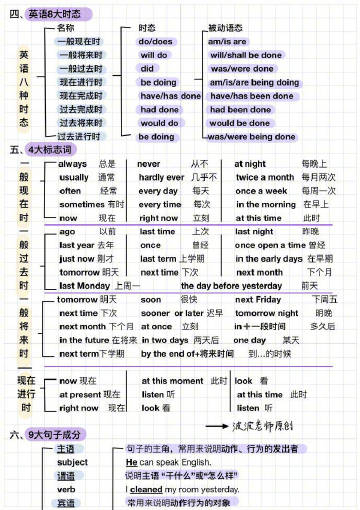 四、英语8大时态
英语八种时态
名称 时态 被动语态
一般现在时 do/does am/is are
一般将来时 will do will/shall be done
一般过去时 did was/were done
现在进行时 be doing am/is/are being doing
现在完成时 have/has done have/has been done
过去完成时 had done had been done
过去将来时 would do would be done
过去进行时 be doing was/were being done
五、4大标志词
一般现在时
always 总是 never 从不 at night 每晚上
usually 通常 hardly ever 几乎不 twice a month 每月两次
often 经常 every day 每天 once a week 每周一次
sometimes 有时 every time 每次 in the morning 在早上
now 现在 right now 立刻 at this time 此时
一般过去时
ago 以前 last time 上次 last night 昨晚
last year 去年 once 曾经 once open a time 曾经
just now 刚才 last term 上学期 in the early days 在早期
tomorrow 明天 next time 下次 next month 下个月
last Monday 上周一 the day before yesterday 前天
一般将来时
tomorrow 明天 soon 很快 next Friday 下周五
next time 下次 sooner or later 迟早 tomorrow night 明晚
next month 下个月 at once 立刻 in+一段时间 多久后
in the future 在将来 in two days 两天后 one day 某天
next term 下学期 by the end of+将来时间 到...的时候
现在进行时
now 现在 at this moment 此时 look 看
at present 现在 listen 听 at this time 此时
right now 现在 look 看 listen 听
老师原创
六、9大句子成分
主语 句子的主角，常用来说明动作、行为的发出者
subject He can speak English.
谓语 说明主语“干什么”或“怎么样”
verb I cleaned my room yesterday.
宾语 常用来说明动作行为的对象